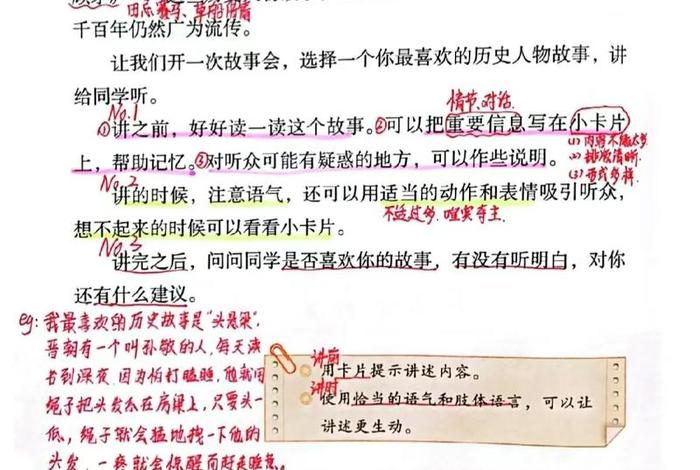 田忌赛马、草船借箭
千百年仍然广为流传。
让我们开一次故事会，选择一个你最喜欢的历史人物故事，讲
给同学听。
No.1
情节、对话
①讲之前，好好读一读这个故事。②可以把重要信息写在小卡片
(1)内容不能太多
上，帮助记忆。③对听众可能有疑惑的地方，可以作些说明。
(2)排版清晰
(3)形式多样
No.2
讲的时候，注意语气，还可以用适当的动作和表情吸引听众，
不适过多，喧宾夺主。
想不起来的时候可以看看小卡片。
No.3
讲完之后，问问同学是否喜欢你的故事，有没有听明白，对你
还有什么建议。
eg：我最喜欢的历史故事是“头悬梁”，
晋朝有一个叫孙敬的人，每天读
书到深夜，因为怕打瞌睡，他就用
绳子把头发永在房梁上，只要头一
低，绳子就会猛地拽一下他的
头发，一疼就会惊醒而赶走睡意。
讲前
用卡片提示讲述内容。
讲时
使用恰当的语气和肢体语言，可以让
讲述更生动。